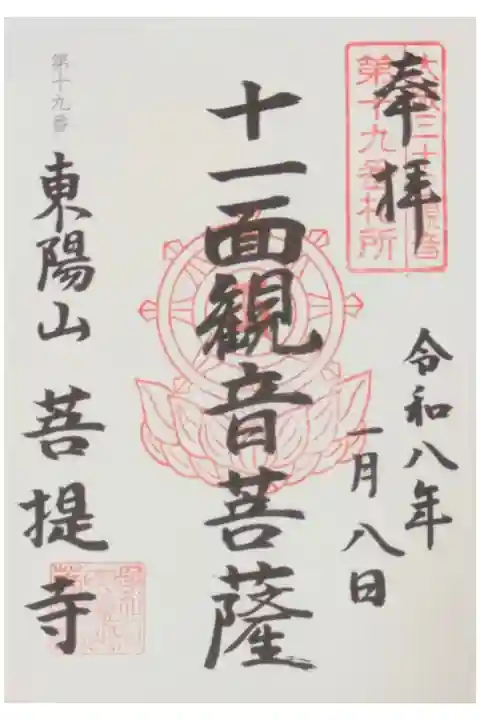 奉拝
第十九番札所
令和八年
一月八日
十一面観音菩薩
第十九番
東陽山 菩提寺